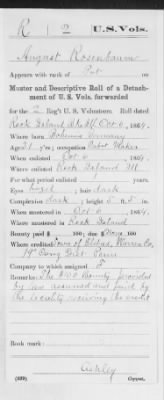 R 2 U.S. Vols.
August Rosenbaum
Appears with rank of Pvt. on
Muster and Descriptive Roll of a Detachment of U. S. Vols. forwarded
for the 2 Reg't U. S. Volunteers. Roll dated
Rock Island Oct. 6, 1864.
Where born Germany
Age 21 y'rs; occupation Maker
When enlisted Oct 6, 1864.
Where enlisted Rock Island Ill
For what period enlisted years.
Eyes hazel; hair dark
Complexion dark; height 5 ft. 5 in.
When mustered in Oct. 6, 1864.
Where mustered in Rock Island
Bounty paid $ 100; due $ 100
Where credited Town of
19" Cong Dist Penn
Company to which assigned
Remarks: The $100 Bounty provided
by law assumed and paid by
the locality receiving the credit
Book mark:
Ashley
(339) Copyist.